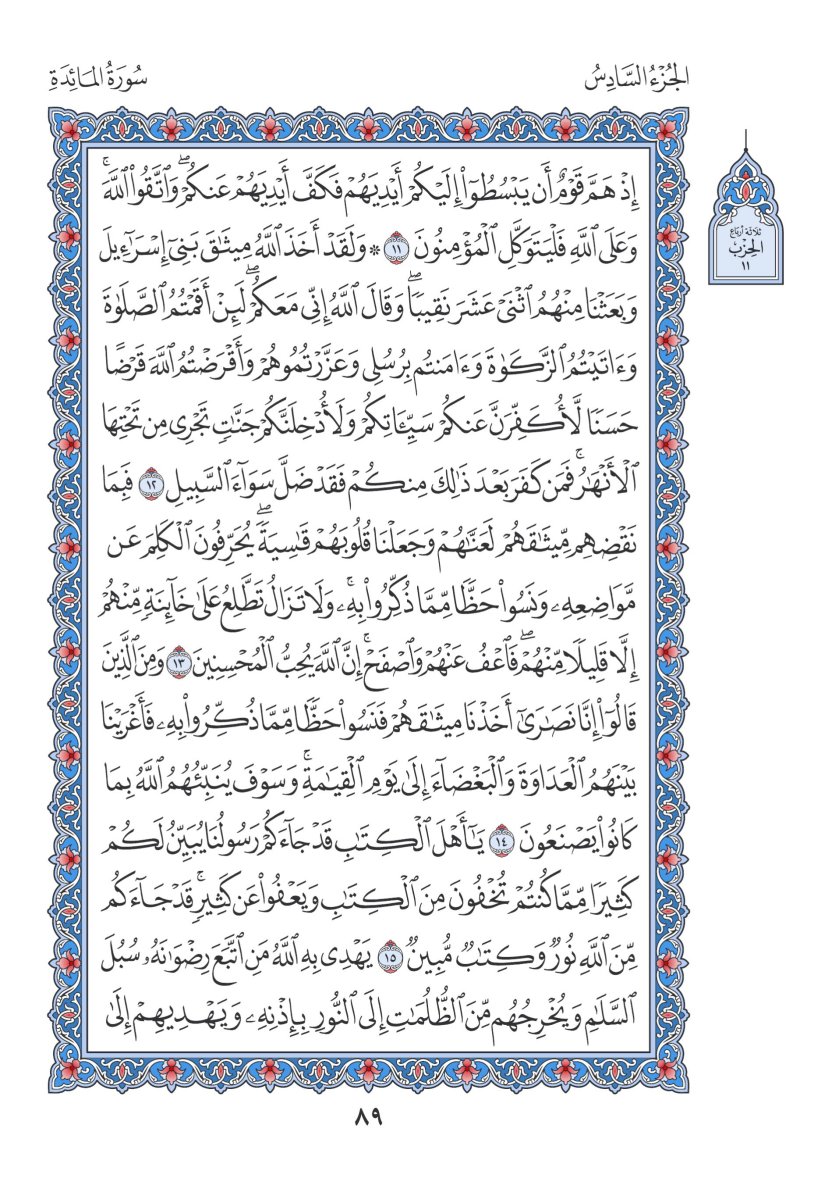 الجُزْءُ السَّادِسُ
سُورَةُ المَائِدَةِ
إِذۡ هَمَّ قَوۡمٌ أَن يَبۡسُطُوٓاْ إِلَيۡكُمۡ أَيۡدِيَهُمۡ فَكَفَّ أَيۡدِيَهُمۡ عَنكُمۡۖ وَٱتَّقُواْ ٱللَّهَۚ
وَعَلَى ٱللَّهِ فَلۡيَتَوَكَّلِ ٱلۡمُؤۡمِنُونَ ١١ ۞ وَلَقَدۡ أَخَذَ ٱللَّهُ مِيثَٰقَ بَنِيٓ إِسۡرَٰٓءِيلَ
وَبَعَثۡنَا مِنۡهُمُ ٱثۡنَيۡ عَشَرَ نَقِيبٗاۖ وَقَالَ ٱللَّهُ إِنِّي مَعَكُمۡۖ لَئِنۡ أَقَمۡتُمُ ٱلصَّلَوٰةَ
وَءَاتَيۡتُمُ ٱلزَّكَوٰةَ وَءَامَنتُم بِرُسُلِي وَعَزَّرۡتُمُوهُمۡ وَأَقۡرَضۡتُمُ ٱللَّهَ قَرۡضًا
حَسَنٗا لَّأُكَفِّرَنَّ عَنكُمۡ سَيِّـَٔاتِكُمۡ وَلَأُدۡخِلَنَّكُمۡ جَنَّٰتٖ تَجۡرِي مِن تَحۡتِهَا
ٱلۡأَنۡهَٰرُۚ فَمَن كَفَرَ بَعۡدَ ذَٰلِكَ مِنكُمۡ فَقَدۡ ضَلَّ سَوَآءَ ٱلسَّبِيلِ ١٢ فَبِمَا
نَقۡضِهِم مِّيثَٰقَهُمۡ لَعَنَّٰهُمۡ وَجَعَلۡنَا قُلُوبَهُمۡ قَٰسِيَةٗۖ يُحَرِّفُونَ ٱلۡكَلِمَ عَن
مَّوَاضِعِهِۦ وَنَسُواْ حَظّٗا مِّمَّا ذُكِّرُواْ بِهِۦۚ وَلَا تَزَالُ تَطَّلِعُ عَلَىٰ خَآئِنَةٖ مِّنۡهُمۡ
إِلَّا قَلِيلٗا مِّنۡهُمۡۖ فَٱعۡفُ عَنۡهُمۡ وَٱصۡفَحۡۚ إِنَّ ٱللَّهَ يُحِبُّ ٱلۡمُحۡسِنِينَ ١٣ وَمِنَ ٱلَّذِينَ
قَالُوٓاْ إِنَّا نَصَٰرَىٰٓ أَخَذۡنَا مِيثَٰقَهُمۡ فَنَسُواْ حَظّٗا مِّمَّا ذُكِّرُواْ بِهِۦ فَأَغۡرَيۡنَا
بَيۡنَهُمُ ٱلۡعَدَاوَةَ وَٱلۡبَغۡضَآءَ إِلَىٰ يَوۡمِ ٱلۡقِيَٰمَةِۚ وَسَوۡفَ يُنَبِّئُهُمُ ٱللَّهُ بِمَا
كَانُواْ يَصۡنَعُونَ ١٤ يَٰٓأَهۡلَ ٱلۡكِتَٰبِ قَدۡ جَآءَكُمۡ رَسُولُنَا يُبَيِّنُ لَكُمۡ
كَثِيرٗا مِّمَّا كُنتُمۡ تُخۡفُونَ مِنَ ٱلۡكِتَٰبِ وَيَعۡفُواْ عَن كَثِيرٖۚ قَدۡ جَآءَكُم
مِّنَ ٱللَّهِ نُورٞ وَكِتَٰبٞ مُّبِينٞ ١٥ يَهۡدِي بِهِ ٱللَّهُ مَنِ ٱتَّبَعَ رِضۡوَٰنَهُۥ سُبُلَ
ٱلسَّلَٰمِ وَيُخۡرِجُهُم مِّنَ ٱلظُّلُمَٰتِ إِلَى ٱلنُّورِ بِإِذۡنِهِۦ وَيَهۡدِيهِمۡ إِلَىٰ
ثلاثة أرباع
الحِزْب
١١
٨٩